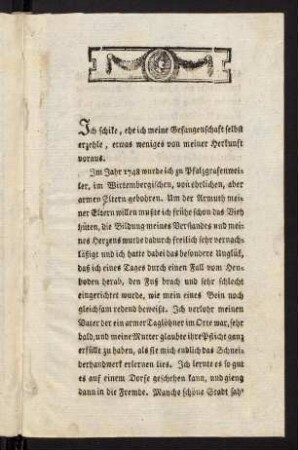 Ich schike, ehe ich meine Gefangenschaft selbst
erzehle, etwas weniges von meiner Herkunft
voraus.
Im Jahr 1748 wurde ich zu Pfalzgrafenwei-
ler, im Wirtembergischen, von ehrlichen, aber
armen Eltern gebohren. Um der Armuth mei-
ner Eltern willen mußte ich frühe schon das Vieh
hüten, die Bildung meines Verstandes und mei-
nes Herzens wurde dadurch freilich sehr vernach-
läßigt und ich hatte dabei das besondere Unglük,
daß ich eines Tages durch einen Fall vom Heu-
boden herab, den Fuß brach und sehr schlecht
eingerichtet wurde, wie mein eines Bein noch
gleichsam redend beweißt. Ich verlohr meinen
Vater der ein armer Taglöhner im Orte war, sehr
bald, und meine Mutter glaubte ihre Pflicht ganz
erfüllt zu haben, als sie mich endlich das Schnei-
derhandwerk erlernen lies. Ich lernte es so gut
es auf einem Dorfe geschehen kann, und gieng
dann in die Fremde. Manche schöne Stadt sah'